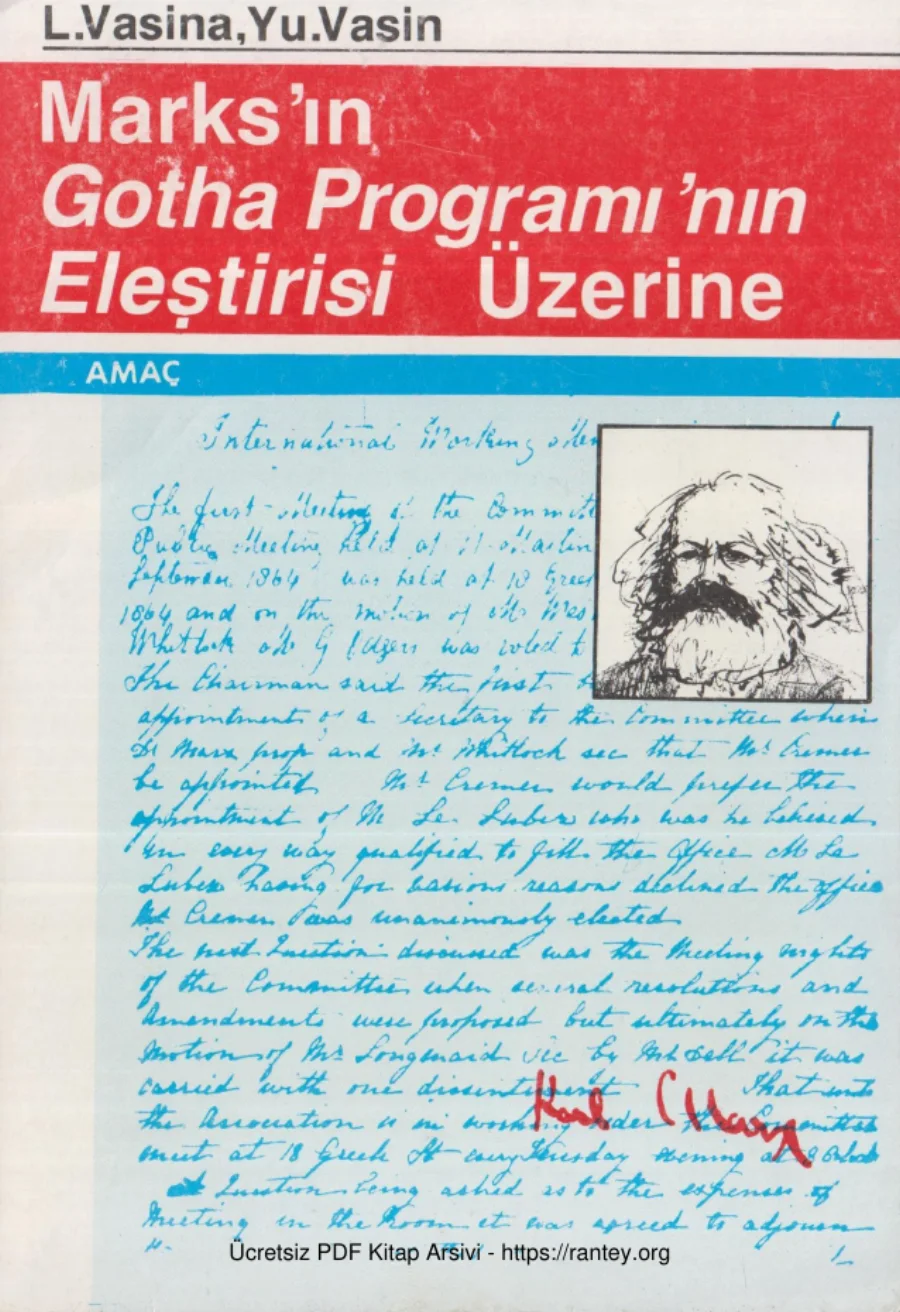 L.Vasina,Yu.Vasin
Marks'ın
Gotha Programı'nın
Eleştirisi Üzerine
AMAÇ
International Working Men
The first Meeting of the Committ
Public Meeting held at St Martin
September 1864 was held at 18 Greek
1864 and on the motion of Mr Wes
Whitlock Mr G Odgers was voted t
The Chairman said the first b
appointment of a Secretary to the Committee when
Dr Marx prop and Mr Whitlock sec that Mr Cremer
be appointed Mr Cremer would prefer the
appointment of M Le Lubez who was he believed
in every way qualified to fill the Office M Le
Lubez having for various reasons declined the office
Mr Cremer was unanimously elected
The next Question discussed was the Meeting nights
of the Committee when several resolutions and
Amendments were proposed but ultimately on the
motion of Mr Longmaid Sec by Mr Dell it was
carried with one dissentient That until
the Association is in working order the Committee
meet at 18 Greek St every Tuesday evening at 8 Oclock
Karl Marx
A Question being asked as to the expenses of
Meeting in the Room it was agreed to adjourn
Ücretsiz PDF Kitap Arsivi - https://rantey.org